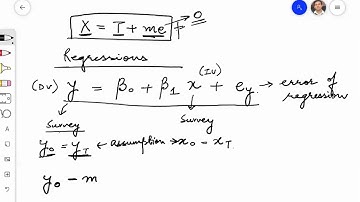 X = T + me → 0
Regressions
(DV) y = β₀ + β₁ x (IV) + e_y → error of regression
Survey Survey
y₀ = y_T ← assumption → x₀ - x_T
y₀ - m